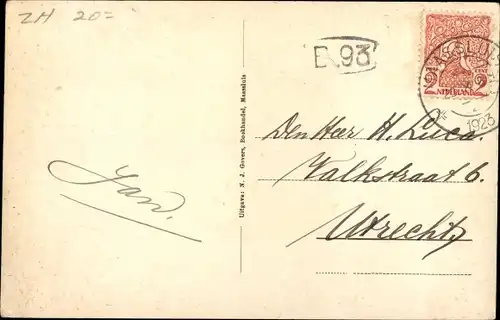 ZH 20=
B.93
2 CENT 2
NEDERLAND
MAASSLUIS
1923
Den Heer H. Luca.
Valkstraat 6.
Utrecht
Jan.
Uitgave: N. J. Govers, Boekhandel, Maassluis